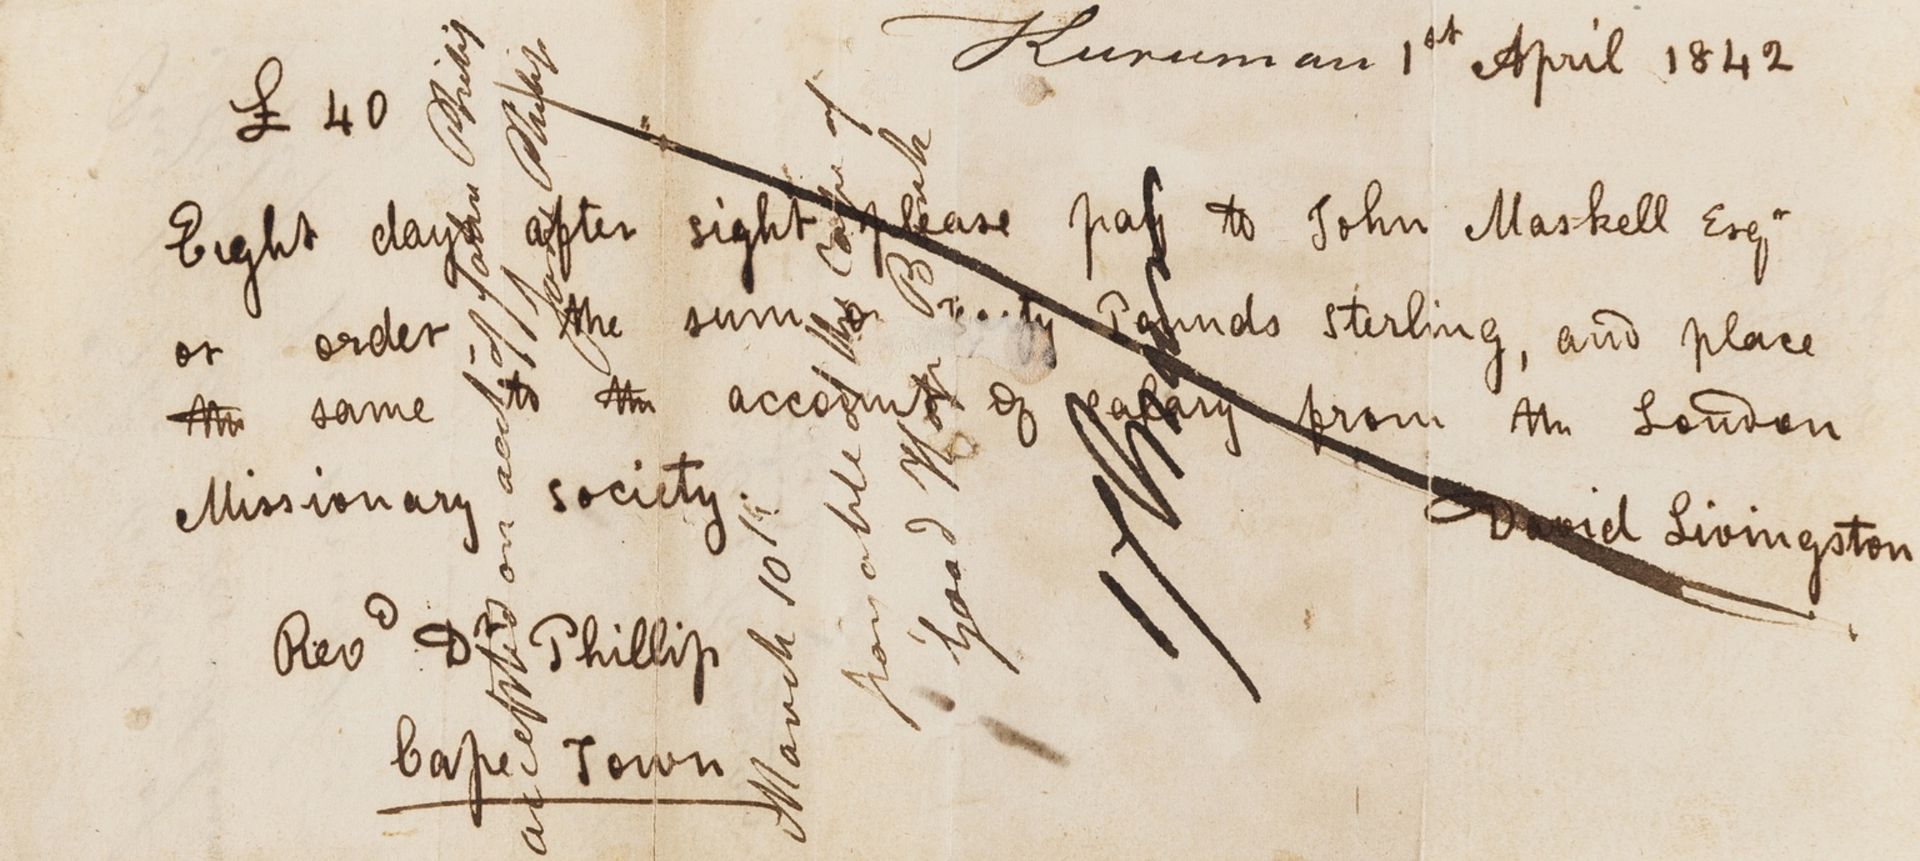 Kuruman 1st April 1842
£ 40
Eight days after sight please pay to John Maskell Esqr
or order the sum of Pounds sterling, and place
the same to the account of salary from the London
Missionary society.
David Livingston
Revd Dr Phillip
Cape Town
accepted on acct of John Philip
Philip
March 10th
payable at the Cape of
Good Hope Bank